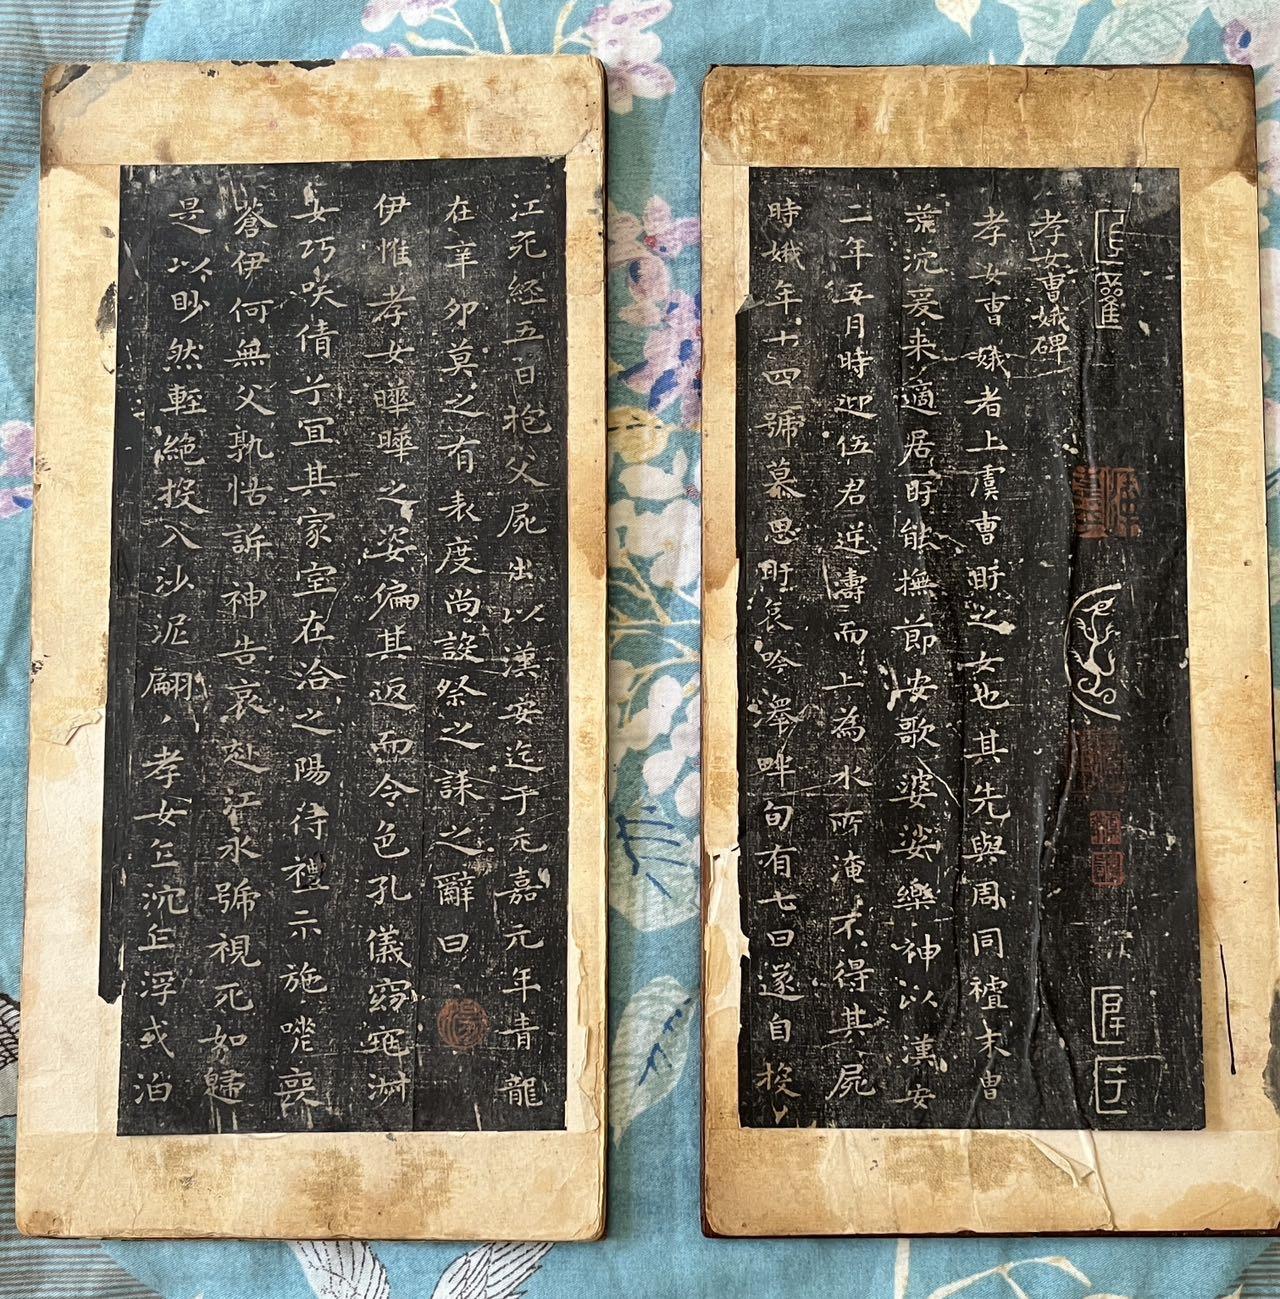 孝女曹娥碑
孝女曹娥者上虞曹盱之女也其先與周同禮末曹
葉沉爰来適居盱能撫節安歌婆娑樂神以漢安
二年五月時迎伍君逆濤而上為水所淹不得其屍
時娥年十四號慕思盱哀吟澤畔旬有七日遂自投
江死經五日抱父屍出以漢安迄于元嘉元年青龍
在辛卯莫之有表度尚設祭之誄之辭曰
伊惟孝女曄曄之姿偏其返而令色孔儀窈窕淑
女巧咲倩兮宜其家室在洽之陽待禮示施嗟喪
蒼伊何無父孰怙訴神告哀赴江永號視死如歸
是以眇然輕絕投入沙泥翩〻孝女乍沉乍浮或泊